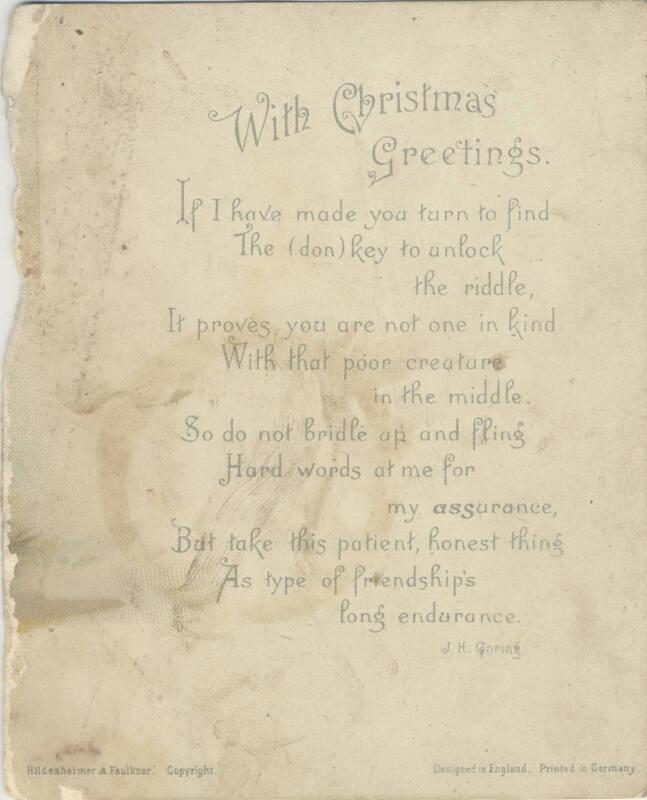 With Christmas
Greetings.
If I have made you turn to find
The (don)key to unlock
the riddle,
It proves you are not one in kind
With that poor creature
in the middle.
So do not bridle up and fling
Hard words at me for
my assurance,
But take this patient, honest thing
As type of friendship's
long endurance.
J. H. Goring
Hildesheimer & Faulkner. Copyright.
Designed in England. Printed in Germany.